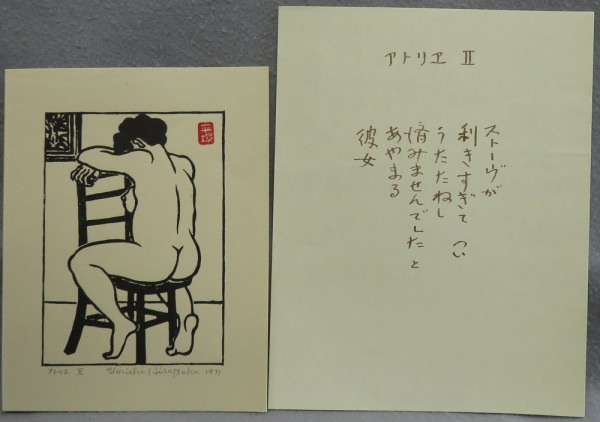 アトリヱ II
ストーヴが
利きすぎて つい
うたたねし
済みませんでしたと
あやまる
彼女
平塚
アトリエ II Un-ichi Hiratsuka 1971